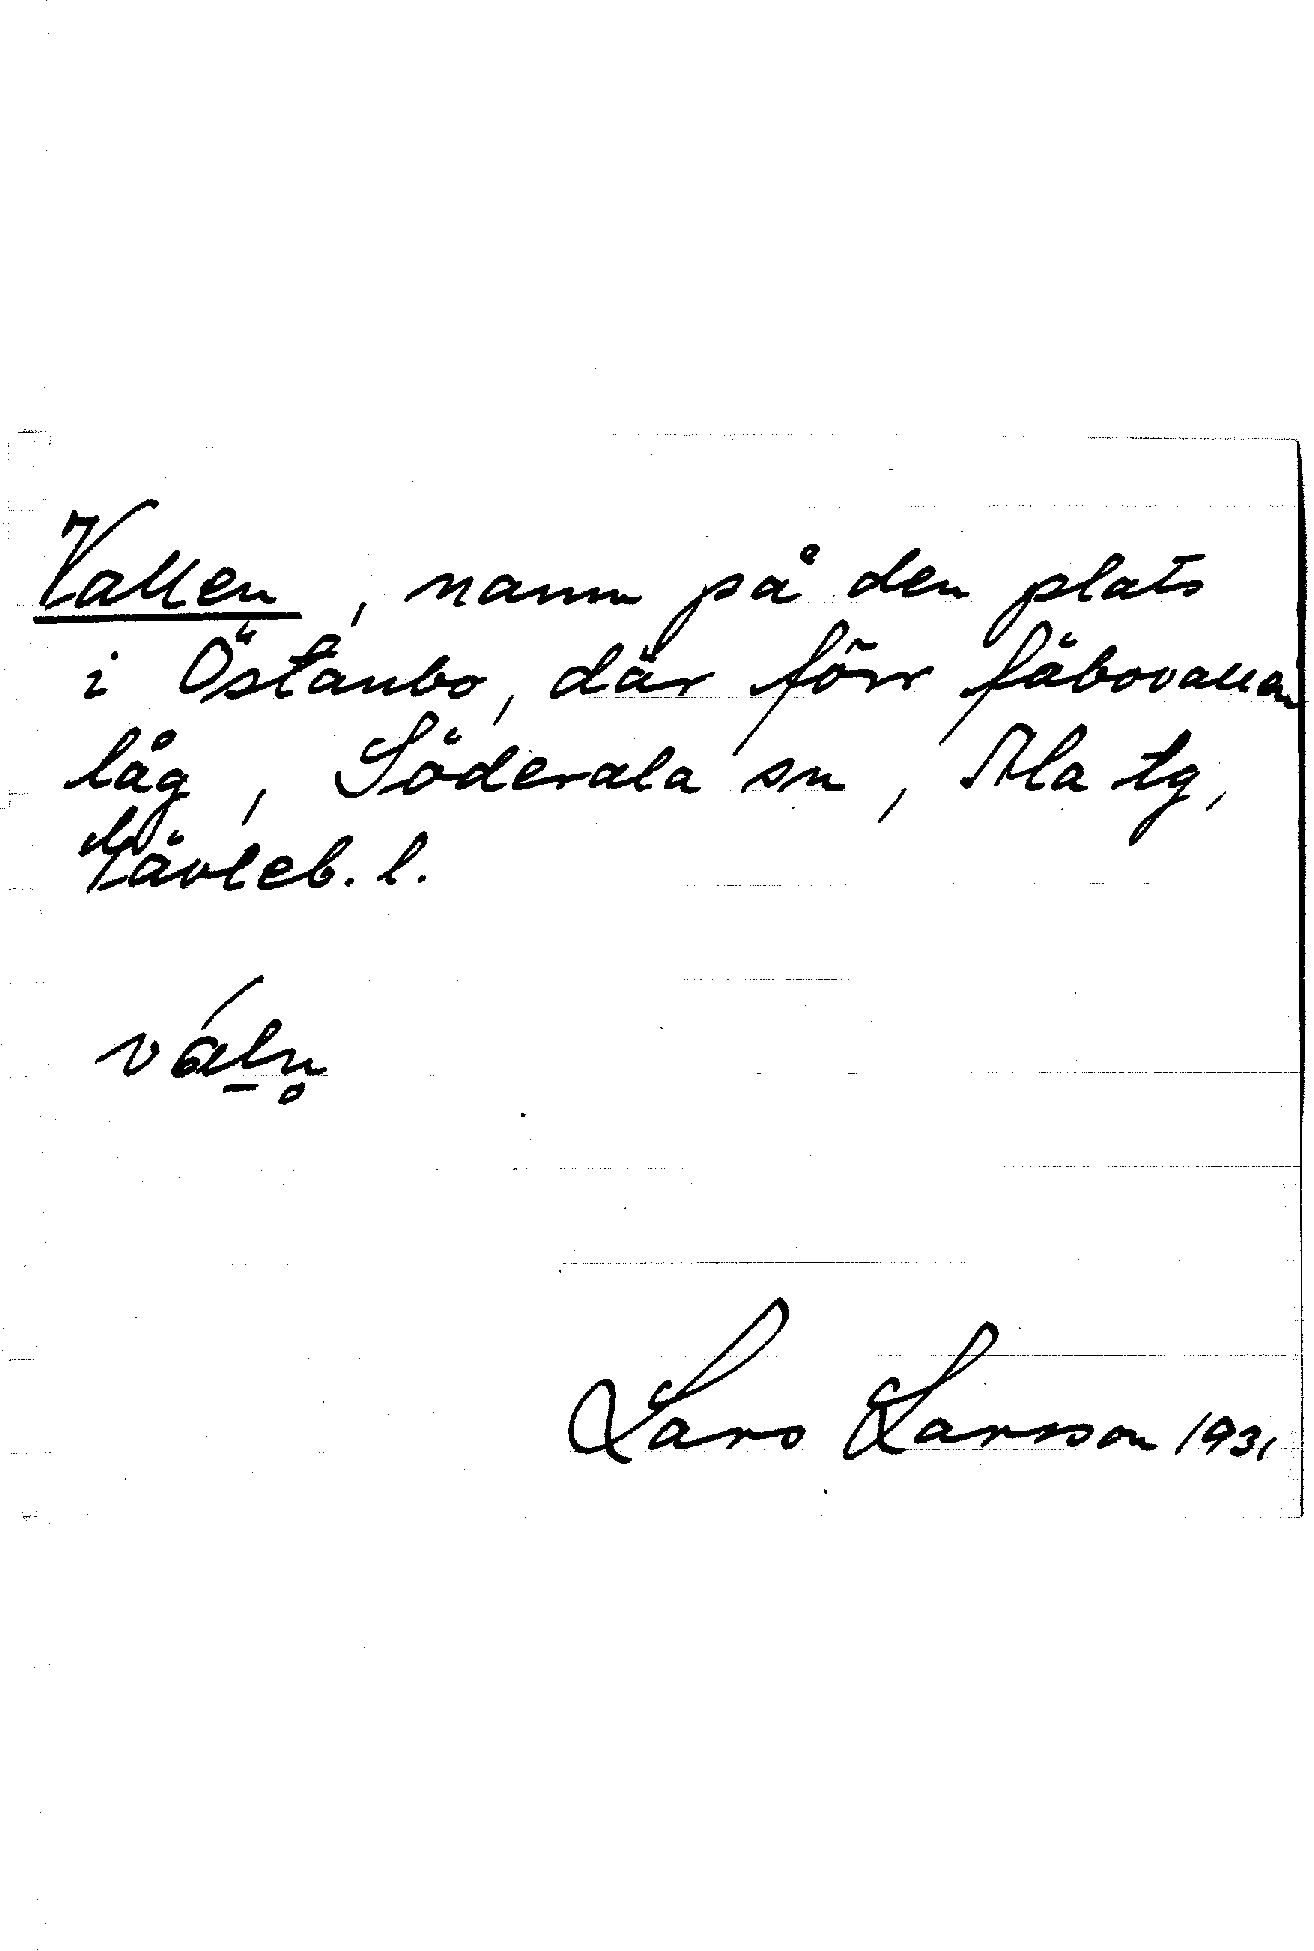 Vallen, namn på den plats
i Östanbo, där förr fäbovallen
låg, Söderala sn, Ala tg,
Gävleb. l.
vál̠n̥
Lars Larsson 1931